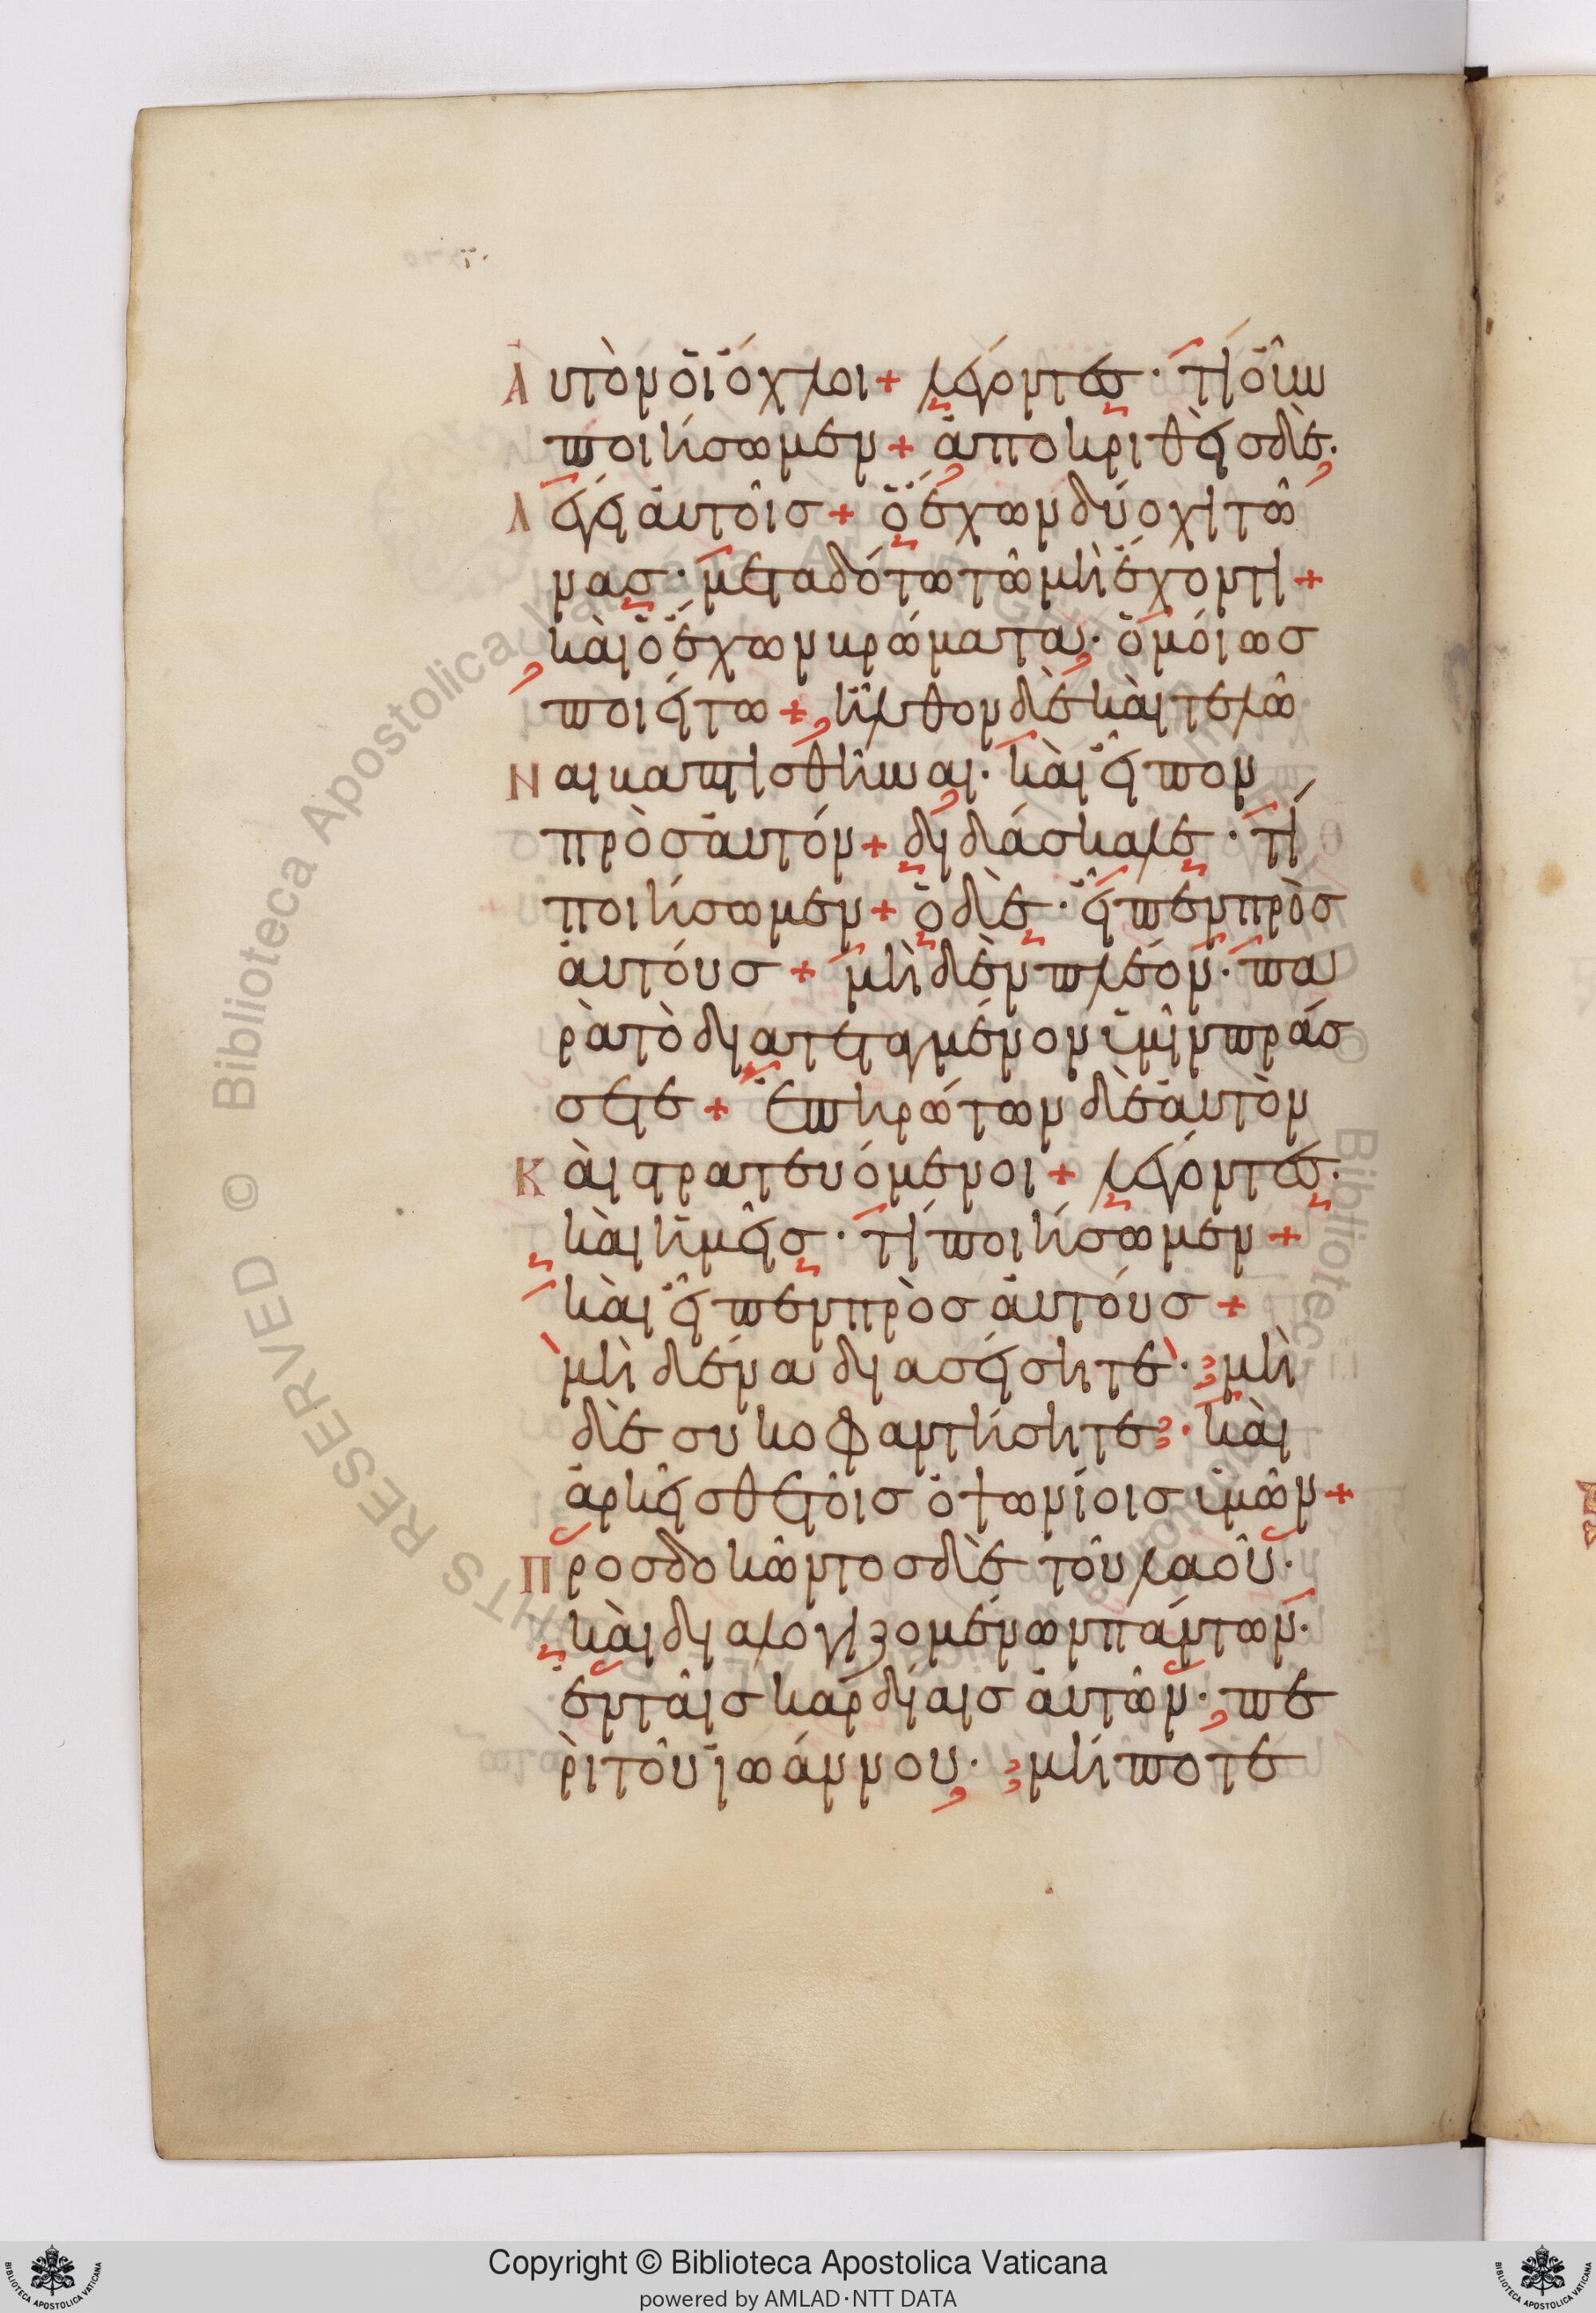 Αὐτὸν ὁι ὄχλοι + λέγοντεσ · τί ὂυν
ποιήσωμεν + ἀποκριθεὶσ δὲ ·
Λέγει ἀυτοῖσ + ὁ ἔχων δύο χιτῶ
νασ · μεταδότω τῶ μὴ ἔχοντι +
κὰι ὁ ἔχων κρώματα · ὁμόιωσ
ποιείτω + ἦλθον δὲ κὰι τελῶ
Ναι καπτισθῆναι · κὰι εἶπον
πρὸσ ἀυτόν + διδάσκαλε · τί
ποιήσωμεν + ὁ δὲ · εἶπεν πρὸσ
ἀυτόυσ + μὴ δὲν πλέον · πα
ρὰ τὸ διατεταγμένον ὑμῖν πράσ
σετε + ἐπηρώτων δὲ ἀυτὸν
Κὰι στρατευόμενοι + λέγοντεσ ·
κὰι ἡμεῖσ · τί ποιήσωμεν +
κὰι εἶπεν πρὸσ ἀυτόυσ +
μὴ δένα διασείσητε · μὴ
δὲ συκοφαντήσητε · κὰι
ἀρκεῖσθε τοῖσ ὀψωνίοισ ὑμῶν +
Προσδοκῶντοσ δὲ τοῦ λαοῦ ·
κὰι διαλογιζομένων πάντων ·
ἐν τᾶισ καρδίαισ ἀυτῶν · πε
ρὶ τοῦ ἰωάννου · μήποτε
Copyright © Biblioteca Apostolica Vaticana
powered by AMLAD·NTT DATA